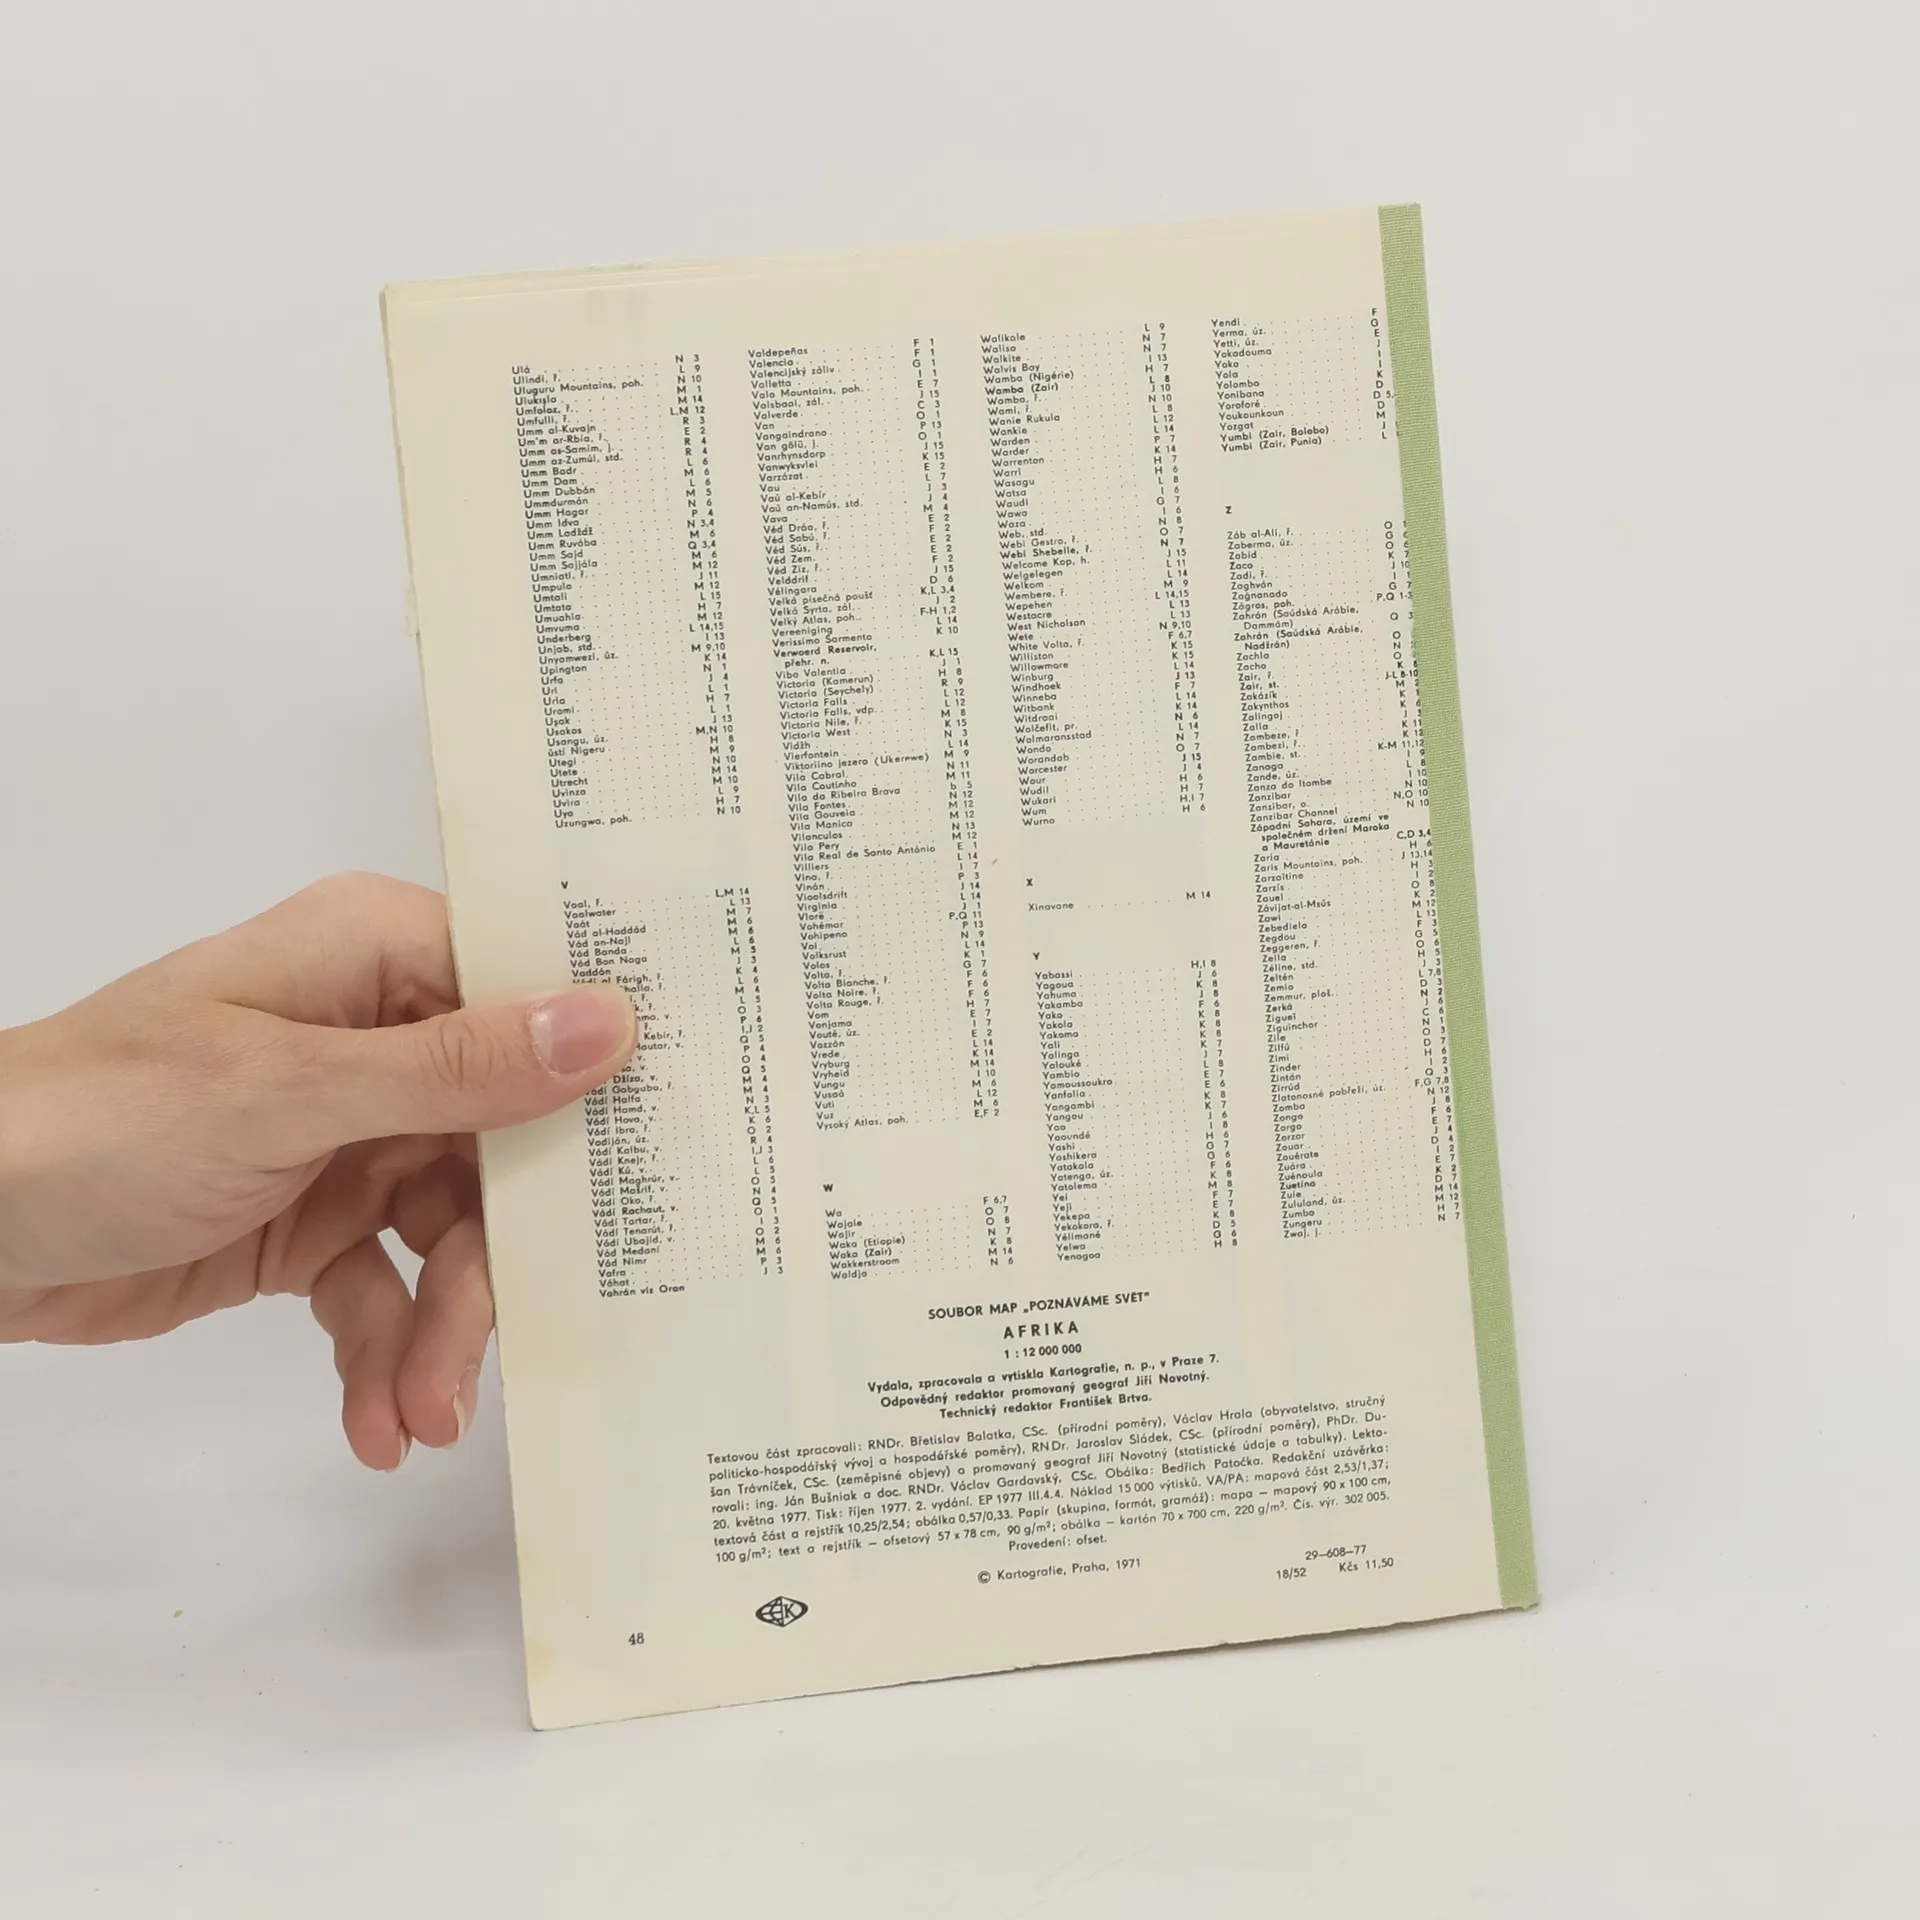 Ulá N 3
Ulindi, ř. L 9
Uluguru Mountains, poh. N 10
Ulukışla M 1
Umfoloz, ř. M 14
Umfulli, ř. L,M 12
Umm al-Kuvajn R 3
Um'm ar-Rbia, ř. E 2
Umm as-Samim, j. R 4
Umm az-Zumúl, std. R 4
Umm Badr L 6
Umm Dam M 6
Umm Dubbán L 6
Ummdurmán M 5
Umm Hagar N 6
Umm Idva P 4
Umm Ladždž N 3,4
Umm Ruvába M 6
Umm Sajd Q 3,4
Umm Sajjála M 6
Umniati, ř. M 12
Umpulo J 11
Umtali M 12
Umtata L 15
Umuahia H 7
Umvuma M 12
Underberg L 14,15
Unjab, std. I 13
Unyamwezi, úz. M 9,10
Upington K 14
Urfa N 1
Uri J 4
Urla L 1
Uromi H 7
Uşak L 1
Usakos J 13
Usangu, úz. M,N 10
ústí Nigeru H 8
Utegi M 9
Utete N 10
Utrecht M 14
Uvinza M 10
Uvira L 9
Uyo H 7
Uzungwa, poh. N 10
V
Vaal, ř. L,M 14
Vaalwater L 13
Vaát M 7
Vád al-Haddád M 6
Vád an-Najl M 6
Vád Banda L 6
Vád Bon Naga M 5
Vaddán J 3
Vádí al Fárigh, ř. K 4
Vádí Gabgaba, ř. M 4
Vádí Halfa M 4
Vádí Hamd, v. N 3
Vádí Hova, v. K,L 5
Vádí Ibra, ř. K 6
Vadiján, úz. O 2
Vádí Kalbu, v. R 4
Vádí Knejr, ř. I,J 3
Vádí Kú, v. L 6
Vádí Maghrúr, v. L 5
Vádí Mašrif, v. O 5
Vádí Oko, ř. N 4
Vádí Rachaut, v. Q 5
Vádí Tartar, ř. O 1
Vádí Tenarút, ř. I 3
Vádí Ubajid, v. O 2
Vád Medaní M 6
Vád Nimr M 6
Vafra P 3
Váhat J 3
Vahrán viz Oran
Valdepeñas F 1
Valencia F 1
Valencijský záliv G 1
Valletta I 1
Valo Mountains, poh. E 7
Valsbaai, zál. J 15
Valverde C 3
Van O 1
Vangaindrano P 13
Van gölü, j. O 1
Vanrhynsdorp J 15
Vanwyksvlei K 15
Varzázat E 2
Vau L 7
Vaú al-Kebír J 3
Vaú an-Namús, std. J 4
Vava M 4
Véd Dráa, ř. E 2
Véd Sabú, ř. F 2
Véd Sús, ř. E 2
Véd Zem E 2
Véd Zíz, ř. F 2
Velddrif J 15
Vélingara D 6
Velká písečná poušť K,L 3,4
Velká Syrta, zál. J 2
Velký Atlas, poh. F-H 1,2
Vereeniging L 14
Verissimo Sarmento K 10
Verwoerd Reservoir,
přehr. n. K,L 15
Vibo Valentia J 1
Victoria (Kamerun) H 8
Victoria (Seychely) R 9
Victoria Falls L 12
Victoria Falls, vdp. L 12
Victoria Nile, ř. M 8
Victoria West K 15
Vidžh N 3
Vierfontein L 14
Viktoriino jezero (Ukerewe) M 9
Vila Cabral N 11
Vila Coutinho M 11
Vila da Ribeira Brava b 5
Vila Fontes N 12
Vila Gouveia M 12
Vila Manica M 12
Vilanculos N 13
Vila Pery M 12
Vila Real de Santo António E 1
Villiers L 14
Vina, ř. I 7
Vinán P 3
Vioolsdrift J 14
Virginia L 14
Vlorë J 1
Vohémar P,Q 11
Vohipeno P 13
Voi N 9
Volksrust L 14
Volos K 1
Volta, ř. G 7
Volta Blanche, ř. F 6
Volta Noire, ř. F 6
Volta Rouge, ř. F 6
Vom H 7
Vonjama E 7
Vouté, úz. I 7
Vazzán E 2
Vrede L 14
Vryburg K 14
Vryheid M 14
Vungu I 10
Vusaá M 6
Vuti L 12
Vuz M 6
Vysoký Atlas, poh. E,F 2
W
Wa F 6,7
Wajale O 7
Wajir O 8
Waka (Etiopie) N 7
Waka (Zair) K 8
Wakkerstroom M 14
Waldja N 6
Walikale L 9
Waliso N 7
Walkite N 7
Walvis Bay I 13
Wamba (Nigérie) H 7
Wamba (Zair) L 8
Wamba, ř. J 10
Wami, ř. N 10
Wanie Rukula L 8
Wankie L 12
Warden L 14
Warder P 7
Warrenton K 14
Warri H 7
Wasagu H 6
Watsa L 8
Waudi I 6
Wawa G 7
Waza I 6
Web, std. N 8
Webi Gestro, ř. O 7
Webi Shebelle, ř. N 7
Welcome Kop, h. J 15
Welgelegen L 11
Welkom L 14
Wembere, ř. M 9
Wepehen L 14,15
Westacre L 13
West Nicholson L 13
Wete N 9,10
White Volta, ř. F 6,7
Williston K 15
Willowmore K 15
Winburg L 14
Windhoek J 13
Winneba F 7
Witbank L 14
Witdraai K 14
Wolčefit, pr. N 6
Wolmaransstad L 14
Wondo N 7
Worandab O 7
Worcester J 15
Wour J 4
Wudil H 6
Wukari H 7
Wum H,I 7
Wurno H 6
X
Xinavane M 14
Y
Yabassi H,I 8
Yagoua J 6
Yahuma K 8
Yakamba J 8
Yako F 6
Yakola K 8
Yakoma K 8
Yali K 7
Yalinga J 7
Yalouké L 8
Yambio E 7
Yamoussoukro E 6
Yanfolia K 8
Yangambi K 7
Yangou J 6
Yao I 8
Yaoundé H 6
Yashi G 7
Yashikera G 6
Yatakala F 6
Yatenga, úz. K 8
Yatolema M 8
Yei F 7
Yeji E 7
Yekepa K 8
Yekokora, ř. D 5
Yélimané G 6
Yelwa H 8
Yenagoa
Yendi F
Yerma, úz. G
Yetti, úz. E
Yokadouma J
Yoko I
Yola I
Yolombo K
Yonibana D
Yoroforé D 5,
Youkounkoun D
Yozgat M
Yumbi (Zair, Bolobo) J
Yumbi (Zair, Punia) L
Z
Záb al-Ali, ř. O 1
Zaberma, úz. G 6
Zabíd O 6
Zaco K 7
Zadi, ř. J 10
Zaghván I 1
Zagnanado G 7
Zágros, poh. P,Q 1-3
Zahrán (Saúdská Arábie,
Dammám) Q 3
Zahrán (Saúdská Arábie,
Nadžrán) O
Zachla N 2
Zacho O
Zair, ř. K 8
Zair, st. J-L 8-10
Zakázík M 2
Zakynthos K 1
Zalingoj K 6
Zalla J 3
Zambeze, ř. K 11
Zambezi, ř. K 12
Zambie, st. K-M 11,12
Zanaga I 9
Zande, úz. L 8
Zanza do Itombe I 10
Zanzibar N 10
Zanzibar, o. N,O 10
Zanzibar Channel N 10
Západní Sahara, území ve
společném držení Maroka
a Mauretánie C,D 3,4
Zaria H 6
Zaris Mountains, poh. J 13,14
Zarzaïtine H 3
Zarzís I 2
Zauel O 8
Závijat-al-Msús K 2
Zawi M 12
Zebediela L 13
Zegdou F 3
Zeggeren, ř. G 5
Zeila O 6
Zéline, std. H 5
Zeltén J 3
Zemio L 7,8
Zemmur, ploš. D 3
Zerká N 2
Ziguei J 6
Ziguinchor C 6
Zile N 1
Zilfú O 3
Zimi D 7
Zinder H 6
Zintán I 2
Zirrúd Q 3
Zlatonosné pobřeží, úz. F,G 7,8
Zomba N 12
Zongo J 8
Zorgo F 6
Zorzor E 7
Zouar J 4
Zouérate D 4
Zuára I 2
Zuénoula E 7
Zuetina K 2
Zuie D 7
Zululand, úz. M 14
Zumbo M 12
Zungeru H 7
Zwaj, j. N 7
SOUBOR MAP „POZNÁVÁME SVĚT"
AFRIKA
1 : 12 000 000
Vydala, zpracovala a vytiskla Kartografie, n. p., v Praze 7.
Odpovědný redaktor promovaný geograf Jiří Novotný.
Technický redaktor František Brtva.
Textovou část zpracovali: RNDr. Břetislav Balatka, CSc. (přírodní poměry), Václav Hrala (obyvatelstvo, stručný
politicko-hospodářský vývoj a hospodářské poměry), RNDr. Jaroslav Sládek, CSc. (přírodní poměry), PhDr. Du-
šan Trávníček, CSc. (zeměpisné objevy) a promovaný geograf Jiří Novotný (statistické údaje a tabulky). Lekto-
rovali: ing. Ján Bušniak a doc. RNDr. Václav Gardavský, CSc. Obálka: Bedřich Patočka. Redakční uzávěrka:
20. května 1977. Tisk: říjen 1977. 2. vydání. EP 1977 III.4.4. Náklad 15 000 výtisků. VA/PA: mapová část 2,53/1,37;
textová část a rejstřík 10,25/2,54; obálka 0,57/0,33. Papír (skupina, formát, gramáž): mapa – mapový 90 x 100 cm,
100 g/m²; text a rejstřík – ofsetový 57 x 78 cm, 90 g/m²; obálka – kartón 70 x 700 cm, 220 g/m². Čís. výr. 302 005.
Provedení: ofset.
© Kartografie, Praha, 1971
29–608–77
18/52 Kčs 11,50
K
48